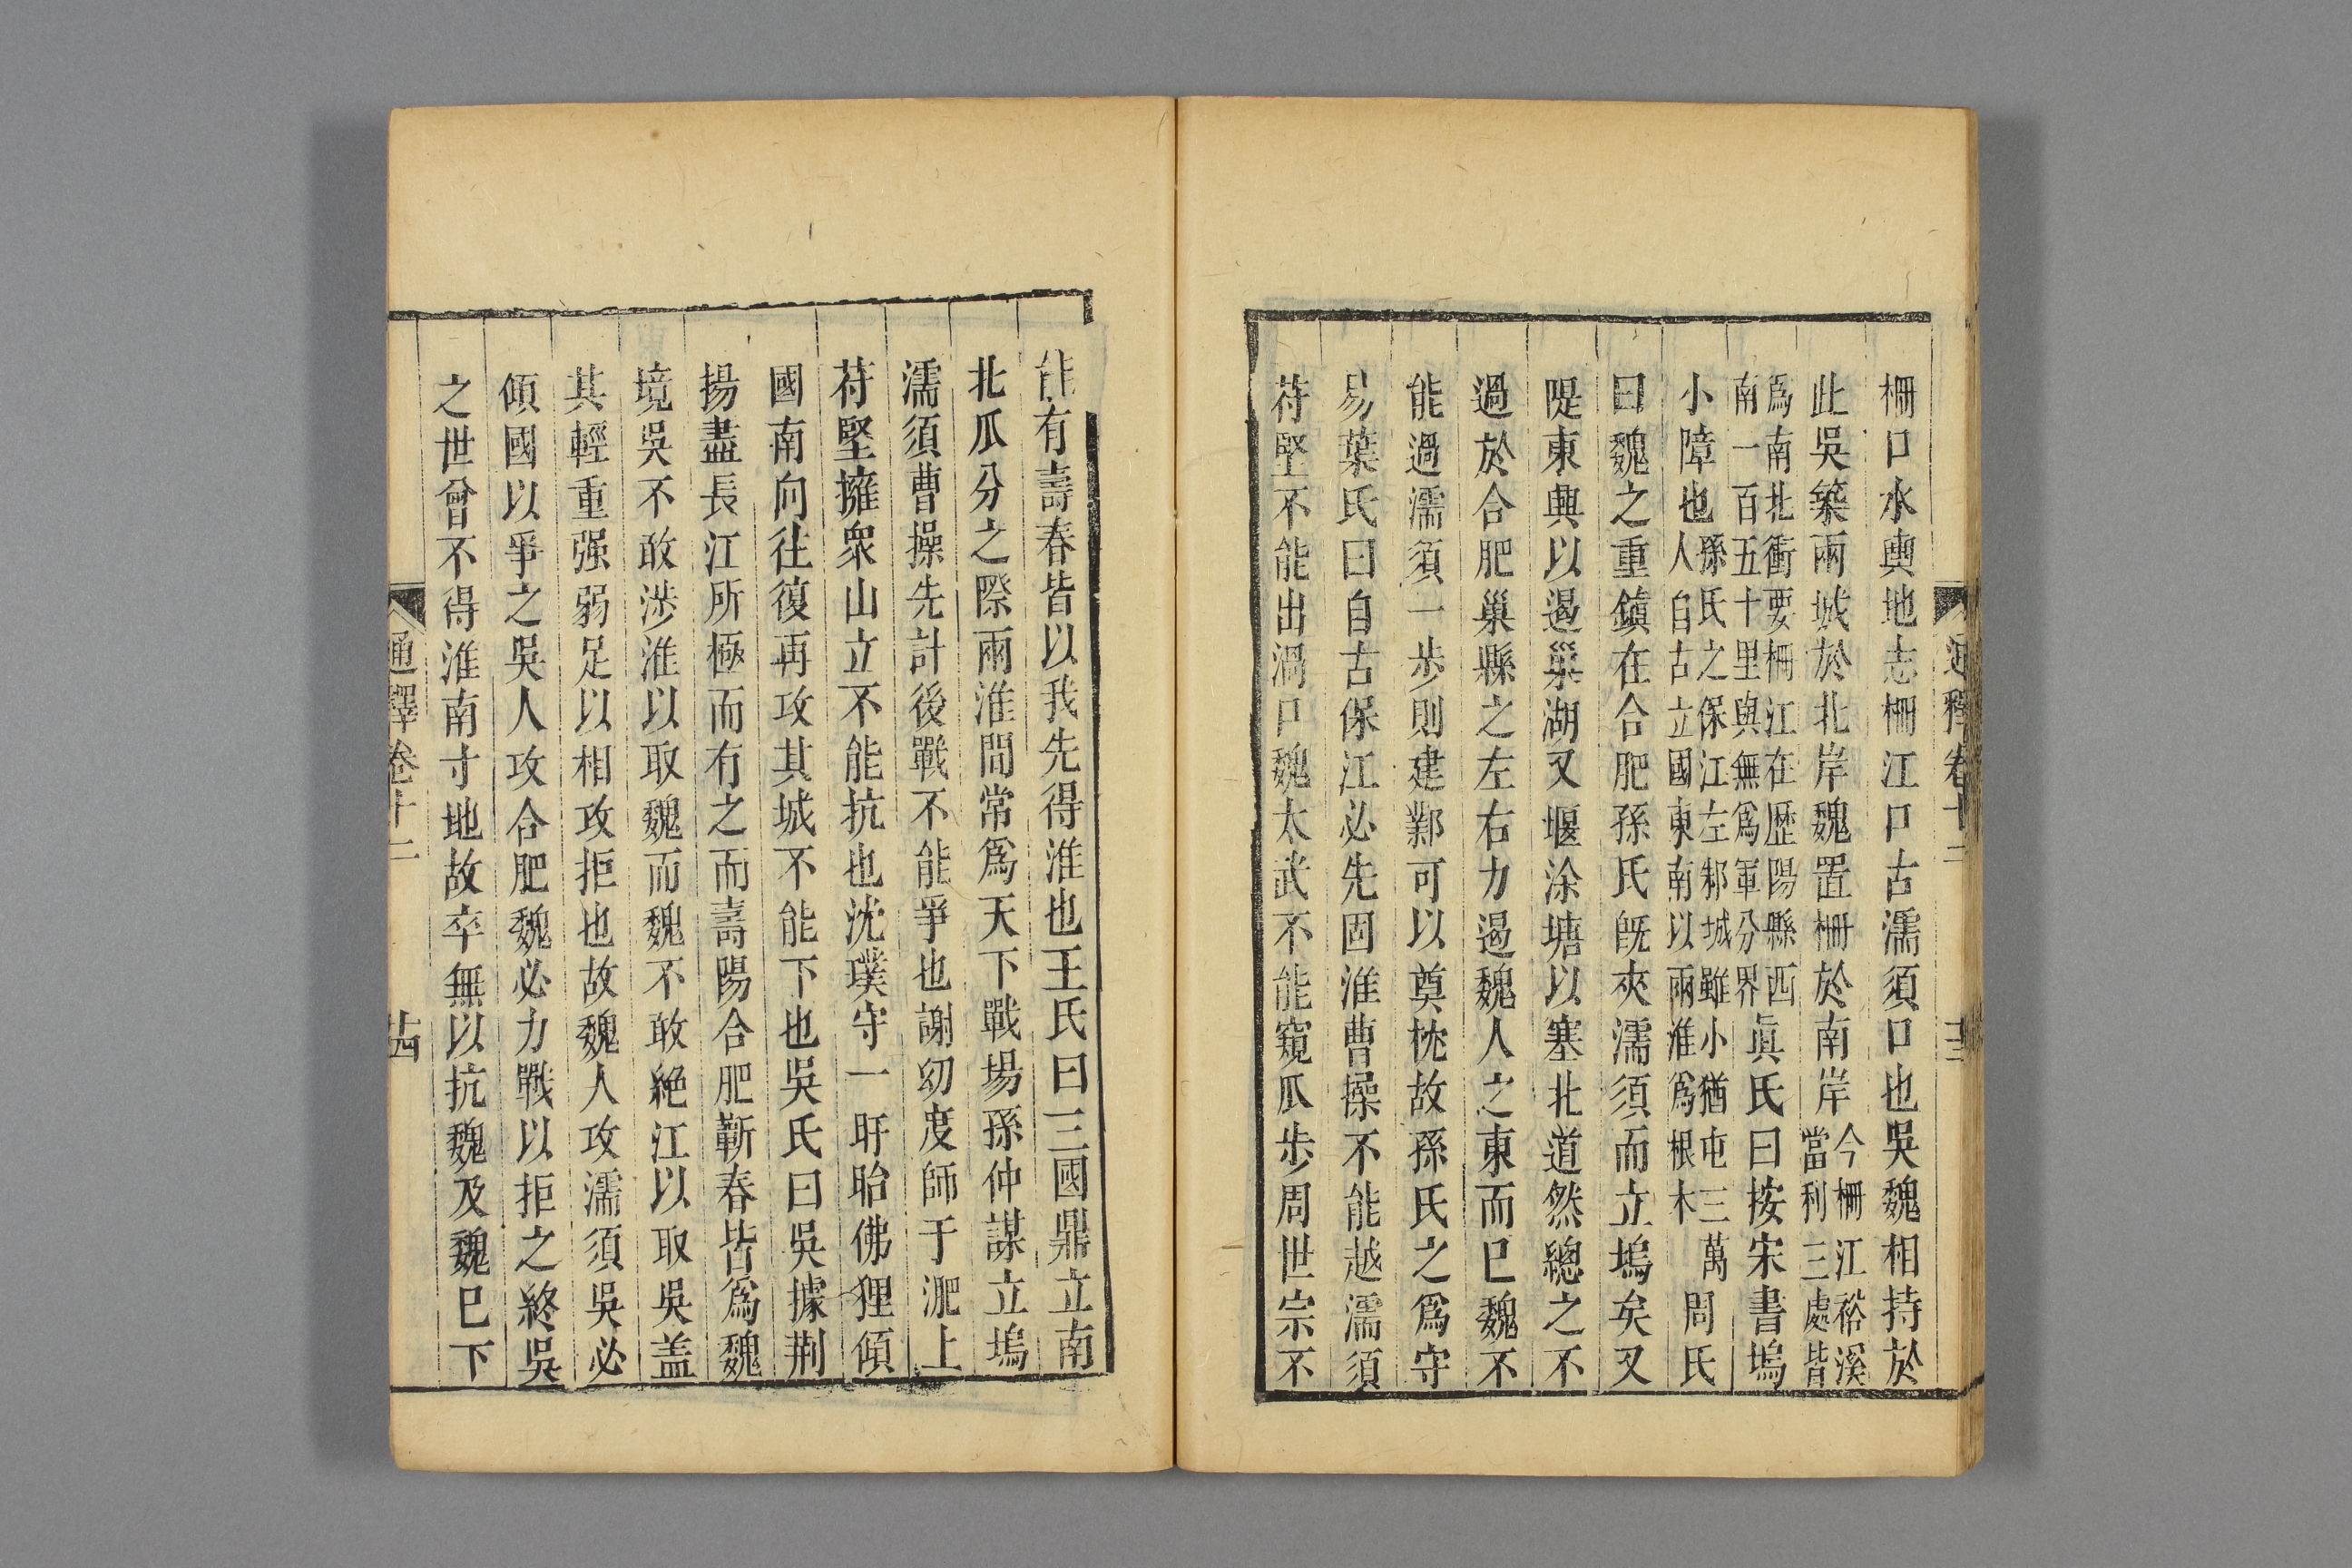 通釋卷十二
栅口水輿地志栅江口古濡須口也吳魏相持於
此吳築兩城於北岸魏置栅於南岸今栅江裕溪
當利三處皆
爲南北衝要栅江在歷陽縣西
南一百五十里與無爲軍分界眞氏曰按宋書塢
小障也孫氏之保江左邾城雖小猶屯三萬
人自古立國東南以兩淮爲根木周氏
曰魏之重鎮在合肥孫氏旣夾濡須而立塢矣又
隄東興以遏巢湖又堰涂塘以塞北道然總之不
過於合肥巢縣之左右力遏魏人之東而已魏不
能過濡須一步則建鄴可以奠枕故孫氏之爲守
易葉氏曰自古保江必先固淮曹操不能越濡須
苻堅不能出渦口魏太武不能窺瓜步周世宗不
能有壽春皆以我先得淮也王氏曰三國鼎立南
北瓜分之際兩淮間常爲天下戰場孫仲謀立塢
濡須曹操先計後戰不能爭也謝幼度師于淝上
苻堅擁衆山立不能抗也沈璞守一盱眙佛狸傾
國南向往復再攻其城不能下也吳氏曰吳據荆
揚盡長江所極而有之而壽陽合肥蘄春皆爲魏
境吳不敢涉淮以取魏而魏不敢絶江以取吳盖
其輕重强弱足以相攻拒也故魏人攻濡須吳必
傾國以爭之吳人攻合肥魏必力戰以拒之終吳
之世曾不得淮南寸地故卒無以抗魏及魏已下
通釋卷十二
十四